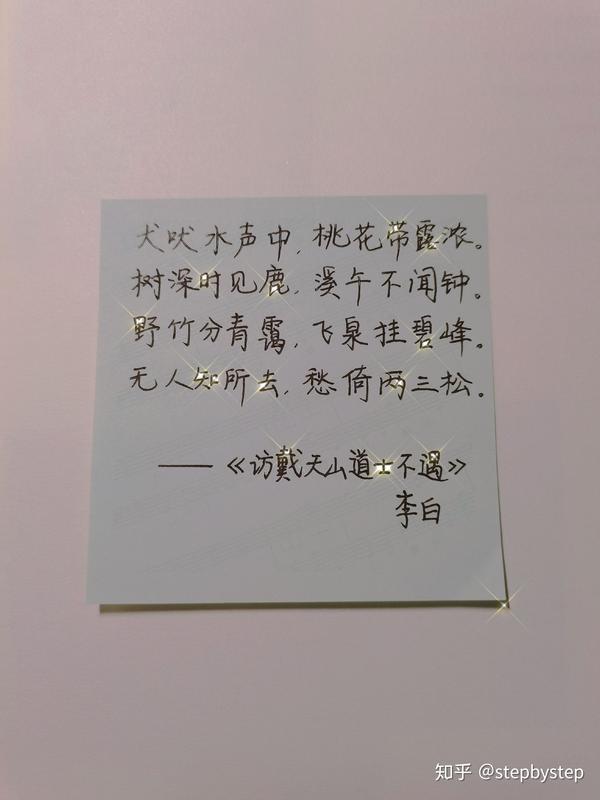 犬吠水声中,桃花带露浓。
树深时见鹿,溪午不闻钟。
野竹分青霭,飞泉挂碧峰。
无人知所去,愁倚两三松。
——《访戴天山道士不遇》
李白
知乎 @stepbystep